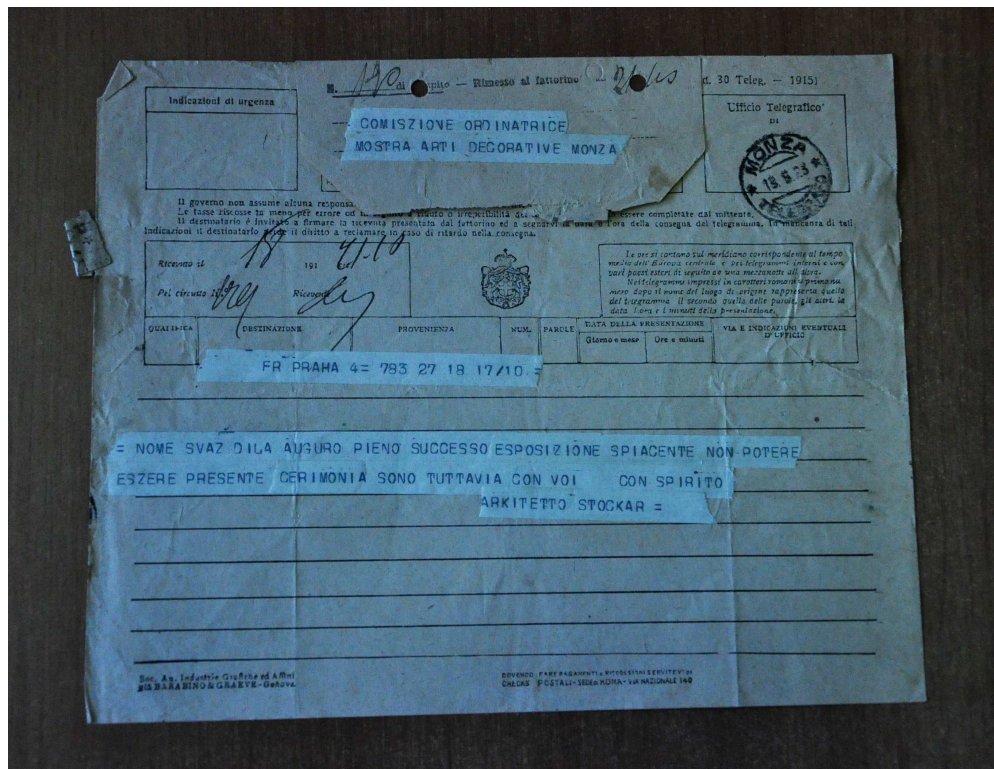 N. 190 di — Rimesso al fattorino
30 Teleg. — 1915)
Indicazioni di urgenza
Ufficio Telegrafico
DI
COMISZIONE ORDINATRICE
MOSTRA ARTI DECORATIVE MONZA
MONZA
Il governo non assume alcuna
Le tasse riscosse in meno per errore od in rifiuto o irreperibilità del essere completate dal mittente.
Il destinatario è invitato a firmare la ricevuta presentata dal fattorino ed a segnarvi la data e l'ora della consegna del telegramma. In mancanza di tali
indicazioni il destinatario perde il diritto a reclamare in caso di ritardo nella consegna.
Ricevuto il 18 191
Pel circuito N.
Ricevente
Le ore si contano sul meridiano corrispondente al tempo
medio dell'Europa centrale e pei telegrammi interni e con
vari paesi esteri di seguito da una mezzanotte all'altra.
Nei telegrammi impressi in caratteri romani il primo nu-
mero dopo il nome del luogo di origine rappresenta quello
del telegramma il secondo quello delle parole, gli altri la
data l'ora e i minuti della presentazione.
QUALIFICA
DESTINAZIONE
PROVENIENZA
NUM.
PAROLE
DATA DELLA PRESENTAZIONE
Giorno e mese
Ore e minuti
VIA E INDICAZIONI EVENTUALI
D'UFFICIO
FR PRAHA 4= 783 27 18 17/10 =
= NOME SVAZ DILA AUGURO PIENO SUCCESSO ESPOSIZIONE SPIACENTE NON POTERE
ESZERE PRESENTE CERIMONIA SONO TUTTAVIA CON VOI CON SPIRITO
ARKITETTO STOCKAR =
Soc. An. Industrie Grafiche ed Affini
BARABINO & GRAEVE - Genova
DOVENDO FARE PAGAMENTI e RISCOSSIONI SERVITEVI DI
CHECKS POSTALI - SEDE in ROMA - VIA NAZIONALE 149